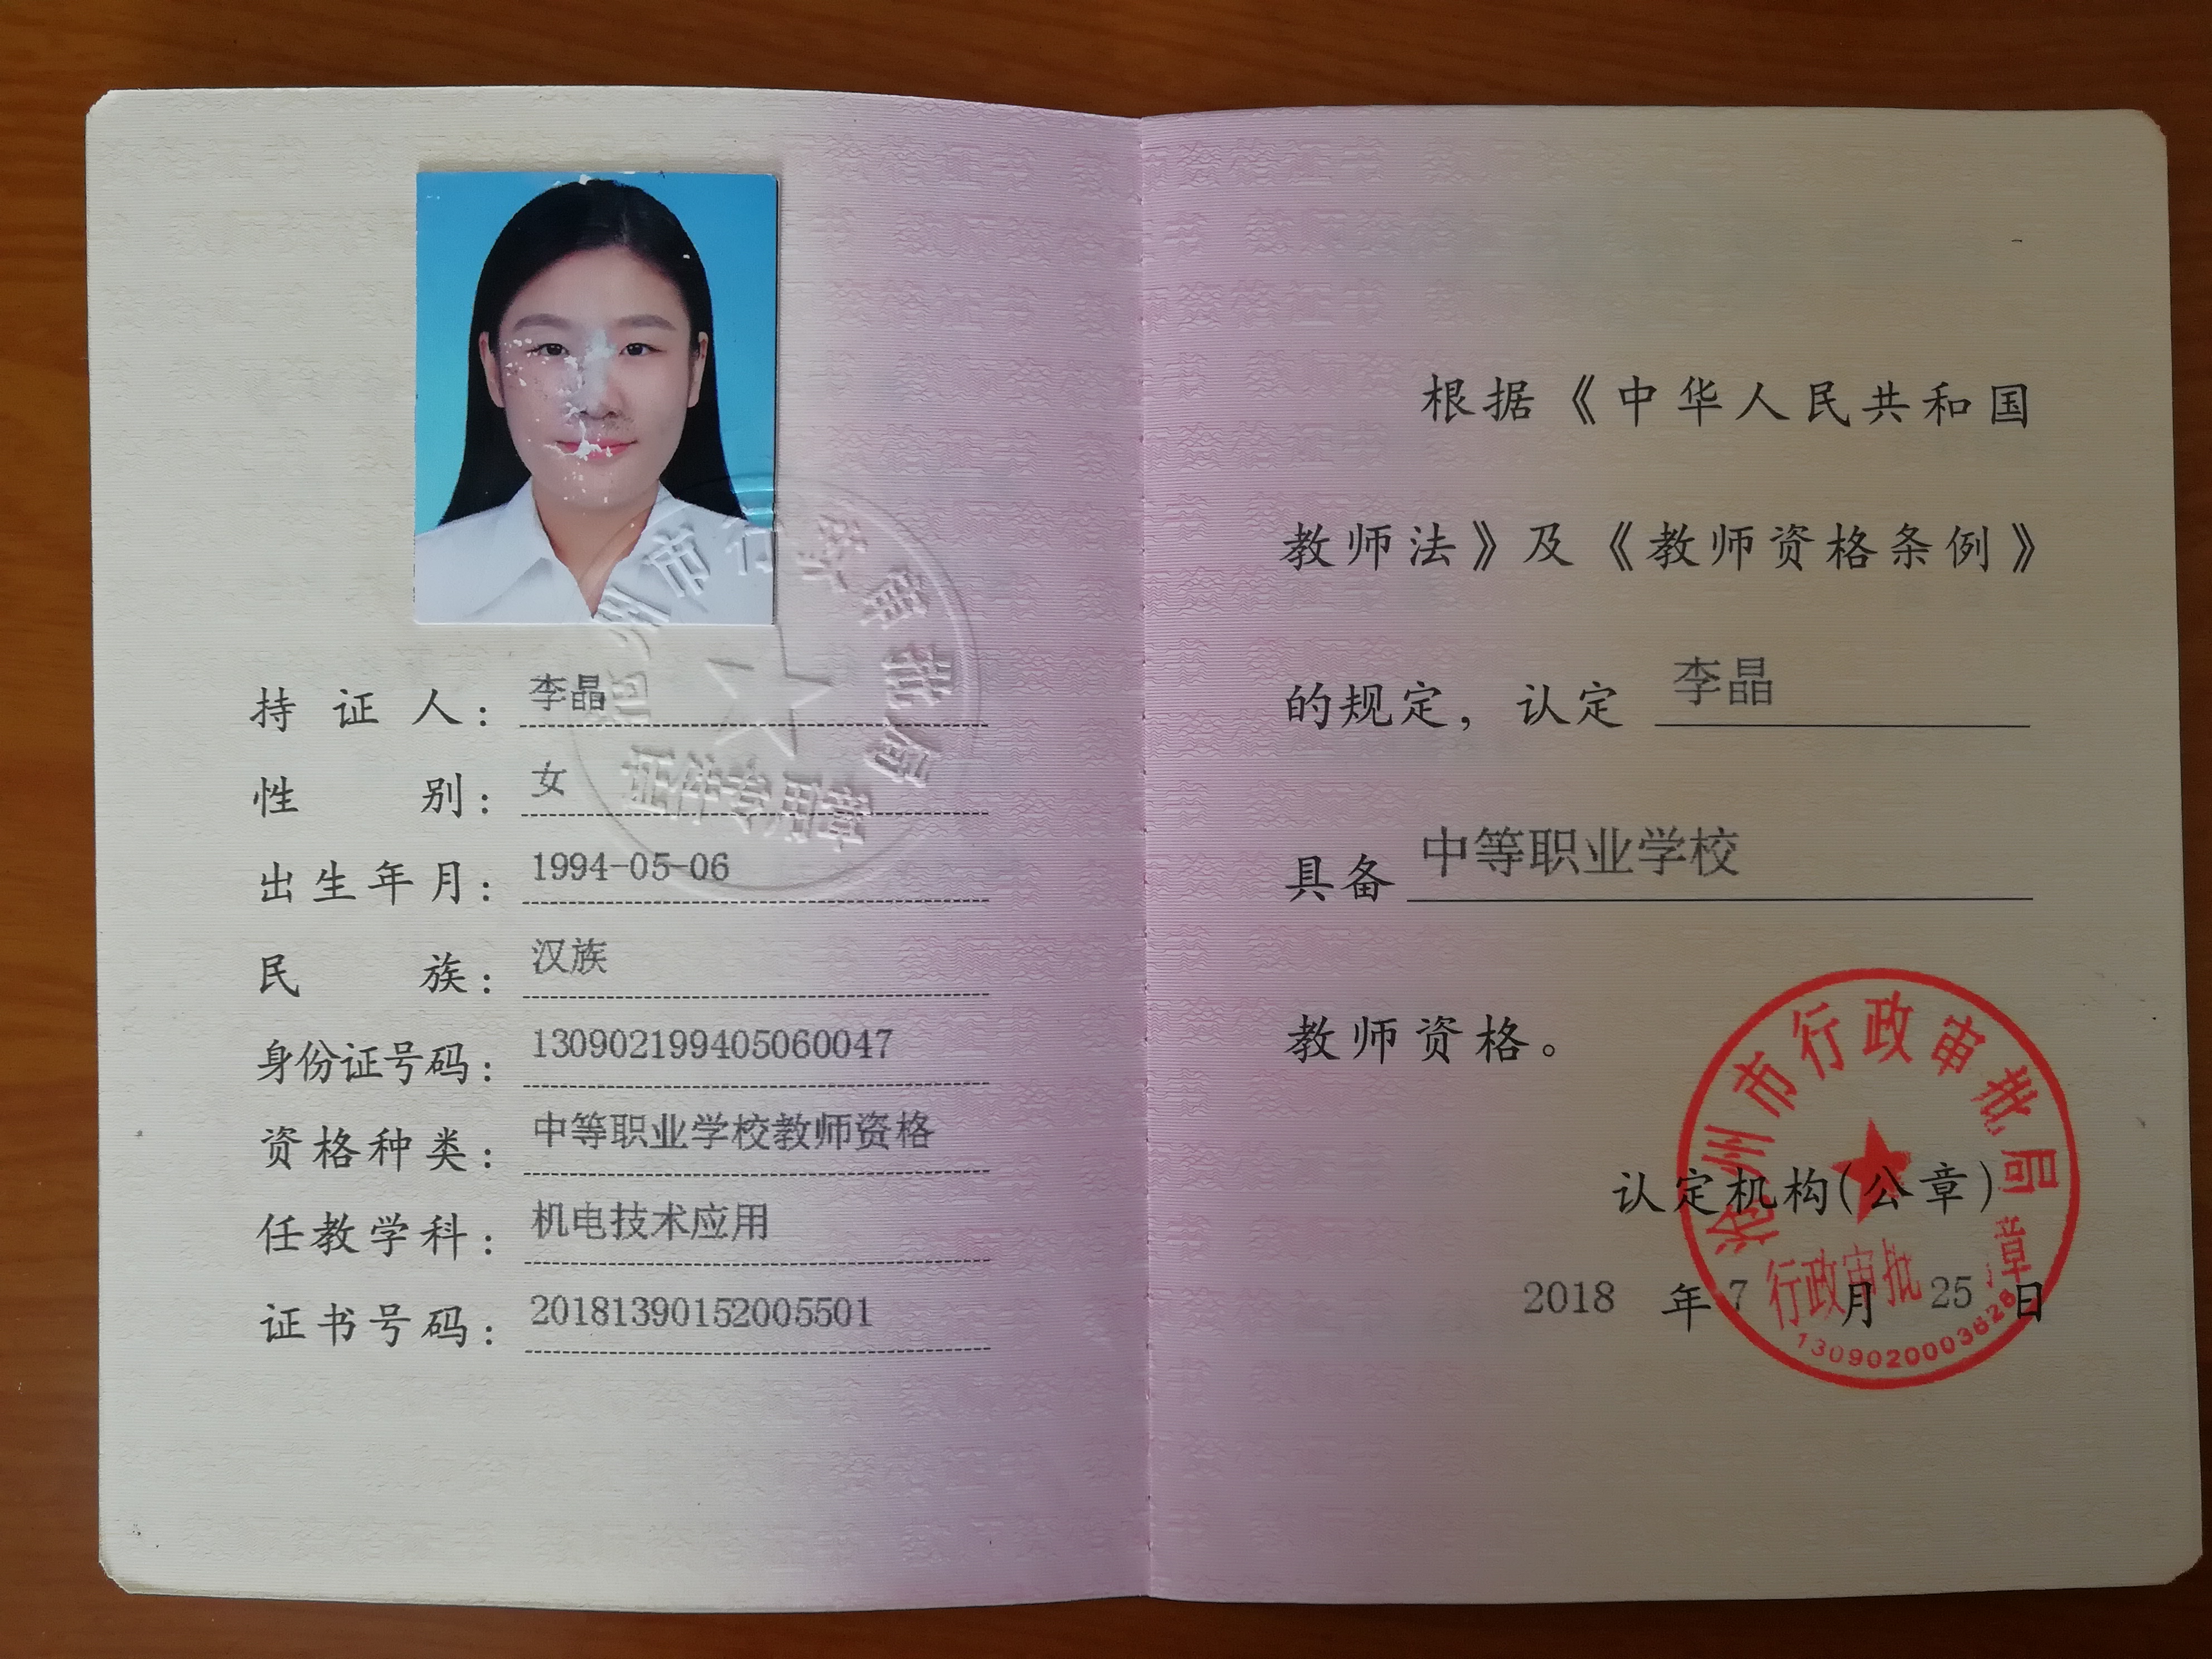 持证人：李晶
性别：女
出生年月：1994-05-06
民族：汉族
身份证号码：130902199405060047
资格种类：中等职业学校教师资格
任教学科：机电技术应用
证书号码：20181390152005501
州市行政审批局
证件专用章
根据《中华人民共和国
教师法》及《教师资格条例》
的规定，认定 李晶
具备 中等职业学校
教师资格。
沧州市行政审批局
认定机构(公章)
行政审批 章
2018 年 7 月 25 日
1309020003628